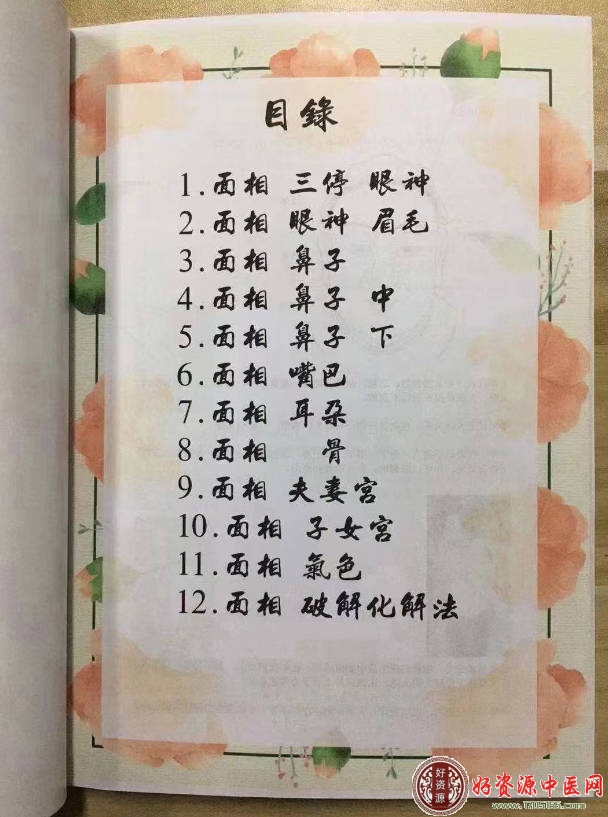 目錄
1.面相 三停 眼神
2.面相 眼神 眉毛
3.面相 鼻子
4.面相 鼻子 中
5.面相 鼻子 下
6.面相 嘴巴
7.面相 耳朵
8.面相 骨
9.面相 夫妻宮
10.面相 子女宮
11.面相 氣色
12.面相 破解化解法
好资源
好资源中医网